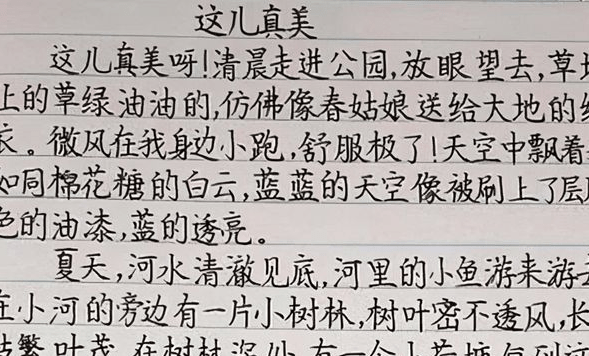 这儿真美
这儿真美呀!清晨走进公园,放眼望去,草地
上的草绿油油的,仿佛像春姑娘送给大地的绿
衣。微风在我身边小跑,舒服极了!天空中飘着
如同棉花糖的白云,蓝蓝的天空像被刷上了层
色的油漆,蓝的透亮。
夏天,河水清澈见底,河里的小鱼游来游去
在小河的旁边有一片小树林,树叶密不透风,长
枝繁叶茂,在树林深处,有一个小